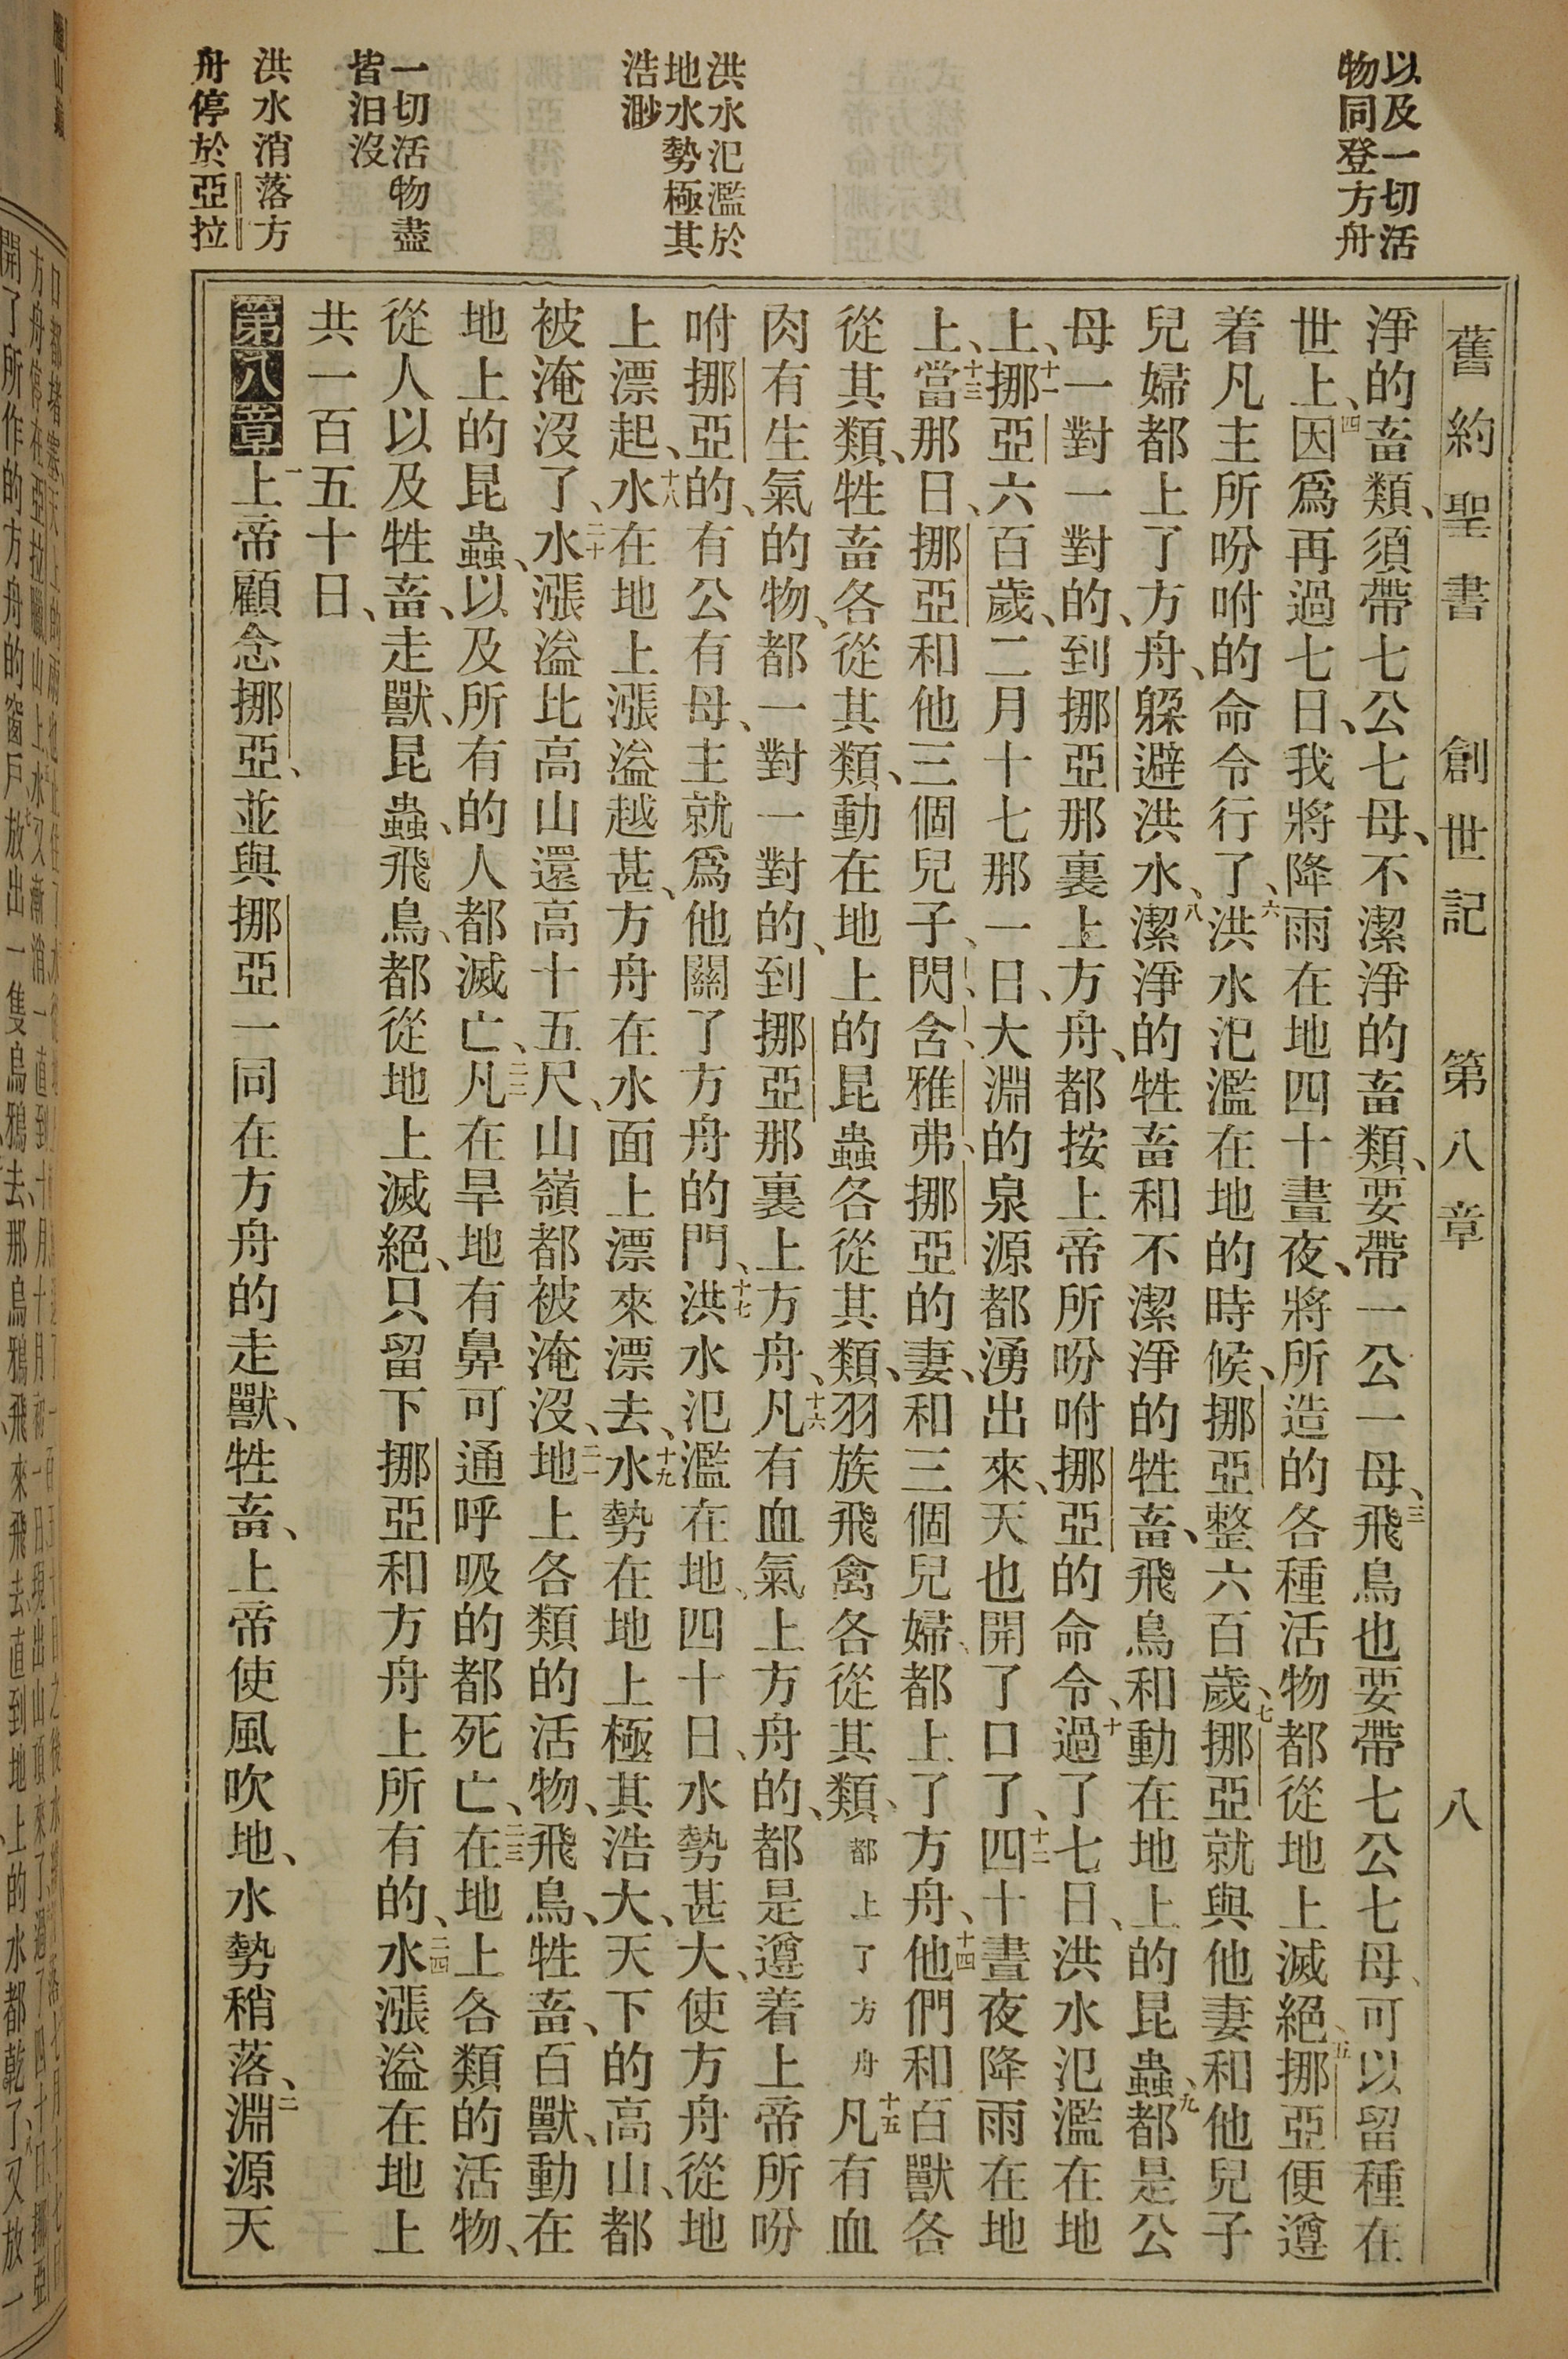 以及一切活
物同登方舟
洪水氾濫於
地水勢極其
浩渺
一切活物盡
皆汨沒
洪水消落方
舟停於亞拉
舊約聖書 創世記 第八章 八
淨的畜類、須帶七公七母、不潔淨的畜類、要帶一公一母、三飛鳥也要帶七公七母、可以留種在
世上、四因爲再過七日、我將降雨在地四十晝夜、將所造的各種活物都從地上滅絕、五挪亞便遵
着凡主所吩咐的命令行了、六洪水氾濫在地的時候、挪亞整六百歲、七挪亞就與他妻和他兒子
兒婦都上了方舟、躱避洪水、八潔淨的牲畜和不潔淨的牲畜、飛鳥和動在地上的昆蟲、九都是公
母一對一對的、到挪亞那裏上方舟、都按上帝所吩咐挪亞的命令、十過了七日、洪水氾濫在地
上、十一挪亞六百歲、二月十七那一日、大淵的泉源都湧出來、天也開了口了、十二四十晝夜降雨在地
上、十三當那日、挪亞和他三個兒子、閃、含、雅弗、挪亞的妻、和三個兒婦、都上了方舟、十四他們和百獸各
從其類、牲畜各從其類、動在地上的昆蟲各從其類、羽族飛禽各從其類、都上了方舟十五凡有血
肉有生氣的物、都一對一對的、到挪亞那裏上方舟、十六凡有血氣上方舟的、都是遵着上帝所吩
咐挪亞的、有公有母、主就爲他關了方舟的門、十七洪水氾濫在地、四十日、水勢甚大、使方舟從地
上漂起、十八水在地上漲溢越甚、方舟在水面上漂來漂去、十九水勢在地上極其浩大、天下的高山、都
被淹沒了、二十水漲溢比高山還高十五尺、山嶺都被淹沒、二一地上各類的活物、飛鳥、牲畜、百獸、動在
地上的昆蟲、以及所有的人都滅亡、二二凡在旱地有鼻可通呼吸的都死亡、二三在地上各類的活物、
從人以及牲畜、走獸、昆蟲、飛鳥、都從地上滅絕、只留下挪亞和方舟上所有的、二四水漲溢在地上
共一百五十日、
第八章 一上帝顧念挪亞、並與挪亞一同在方舟的走獸、牲畜、上帝使風吹地、水勢稍落、二淵源天
開了所作的方舟的窗戶放出一隻烏鴉去、那烏鴉飛來飛去、直到地上的水都乾了、又放一